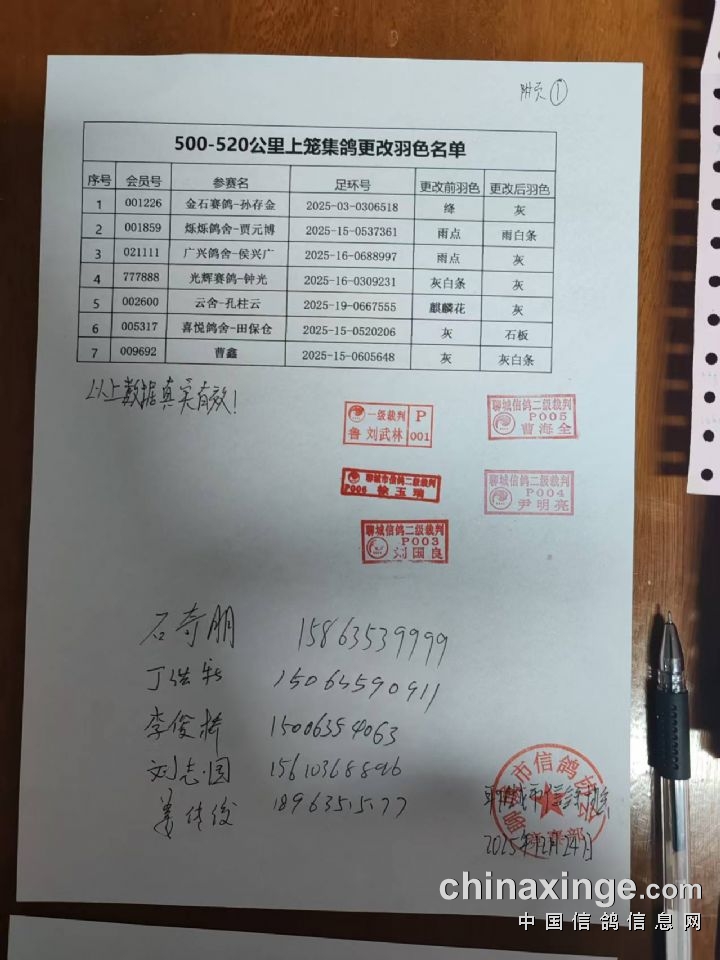 附页①
500-520公里上笼集鸽更改羽色名单
序号 会员号 参赛名 足环号 更改前羽色 更改后羽色
1 001226 金石赛鸽-孙存金 2025-03-0306518 绛 灰
2 001859 烁烁鸽舍-贾元博 2025-15-0537361 雨点 雨白条
3 021111 广兴鸽舍-侯兴广 2025-16-0688997 雨点 灰
4 777888 光辉赛鸽-钟光 2025-16-0309231 灰白条 灰
5 002600 云舍-孔柱云 2025-19-0667555 麒麟花 灰
6 005317 喜悦鸽舍-田保仓 2025-15-0520206 灰 石板
7 009692 曹鑫 2025-15-0605648 灰 灰白条
以上数据真实有效!
一级裁判 P
鲁 刘武林 001
聊城信鸽二级裁判
P005
曹海全
聊城市信鸽二级裁判
P006 徐玉瑞
聊城信鸽二级裁判
P004
尹明亮
聊城信鸽二级裁判
P003
刘国良
石奇朋 15863539999
丁 15063590911
李俊 15006354063
刘志国 15610368896
姜传俊 18963515177
市信鸽
2025年12月24日
chinaxinge.com
中国信鸽信息网